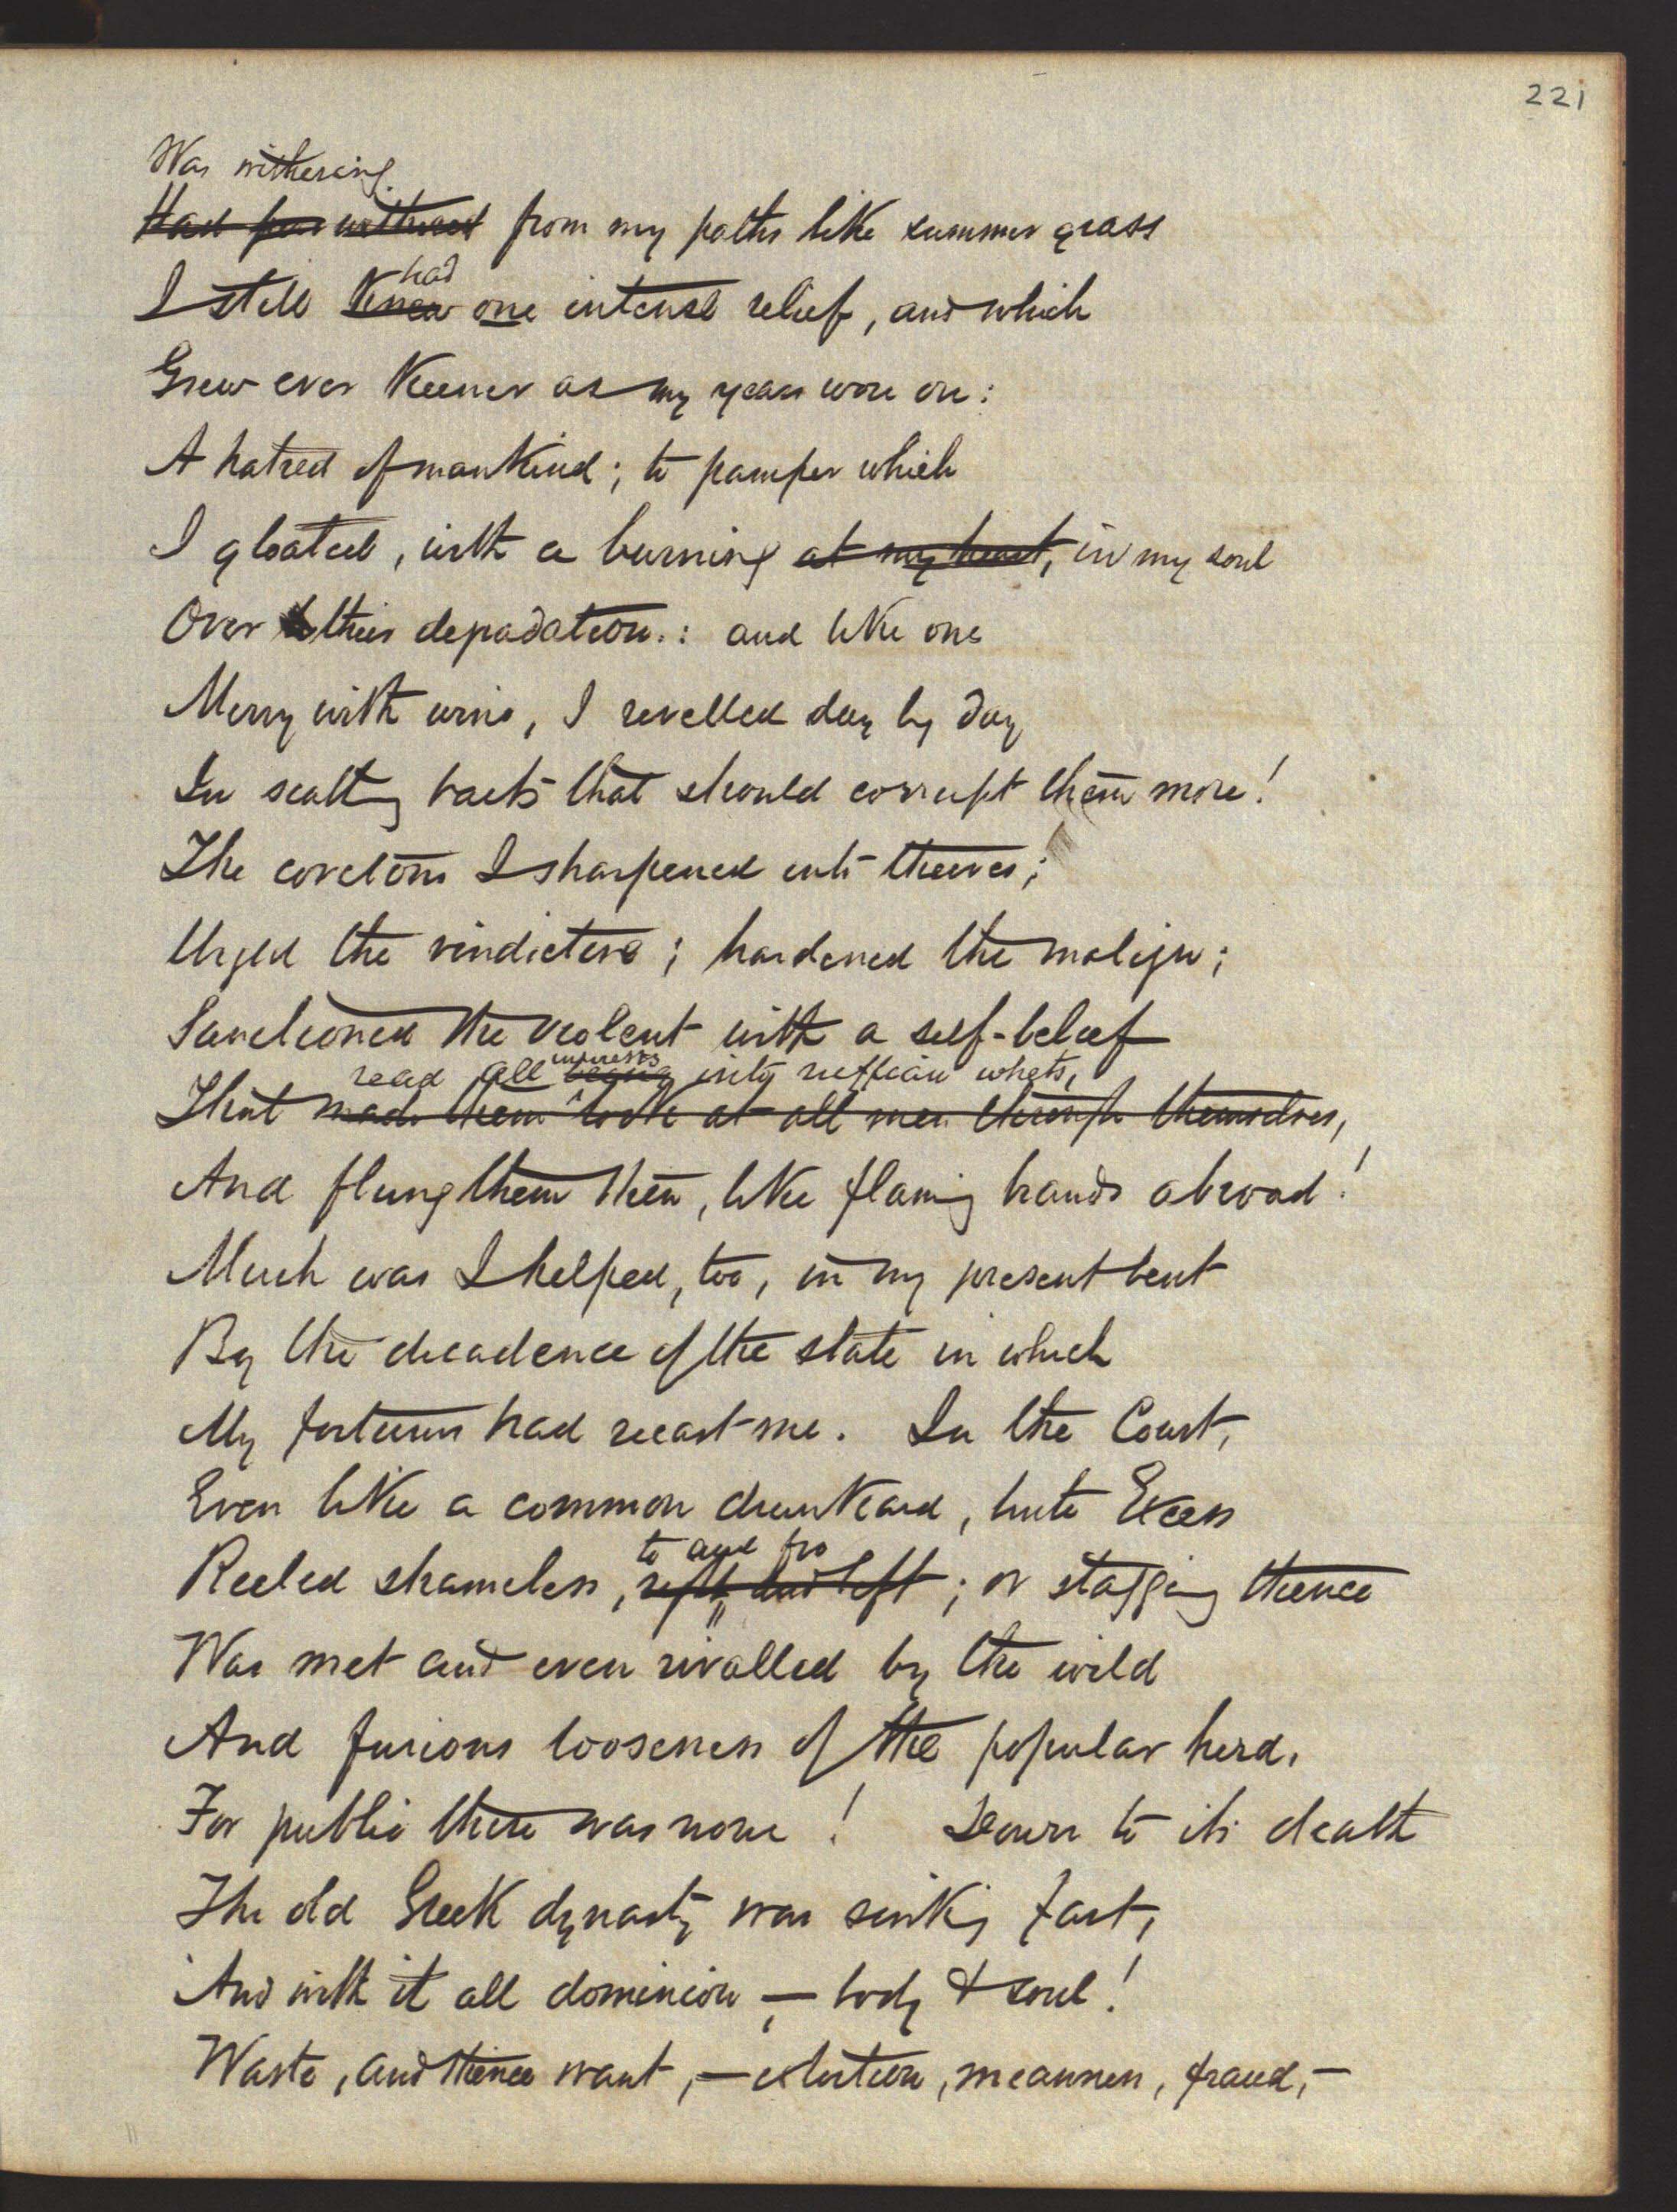 221
Was withering
Had withered from my paths like summer grass
had
I still knew one intense relief, and which
Grew ever keener as my years wore on:
A hatred of mankind; to pamper which
I gloated, with a burning at my heart, in my soul
Over their degradation.: and like one
Merry with wine, I revelled day by day
In scattering baits that should corrupt them more!
The covetous I sharpened into thieves;
Urged the vindictive; hardened the malign;
Sanctioned the violent with a self-belief
interests
read all into ruffian whets,
That made them look at all men through themselves,
And flung them then, like flaming brands abroad!
Much was I helped, too, in my present bent
By the decadence of the state in which
My fortunes had recast me. In the Court,
Even like a common drunkard, brute Excess
to and fro
Reeled shameless, right and left; or staggering thence
Was met and even rivalled by the wild
And furious looseness of the popular herd.
For public there was none! Down to its death
The old Greek dynasty was sinking fast,
And with it all dominion,— body & soul!
Waste, and thence want,— extortion, meanness, fraud,—